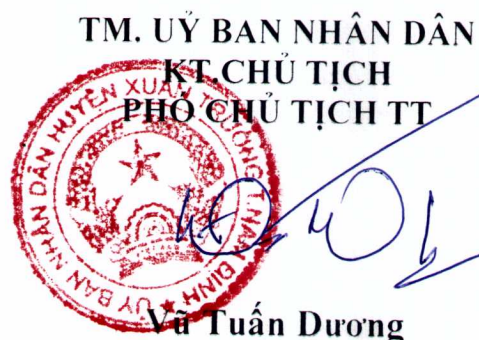 TM. UỶ BAN NHÂN DÂN
KT.CHỦ TỊCH
PHÓ CHỦ TỊCH TT
UỶ BAN NHÂN DÂN HUYỆN XUÂN TRƯỜNG T.NAM ĐỊNH
Vũ Tuấn Dương